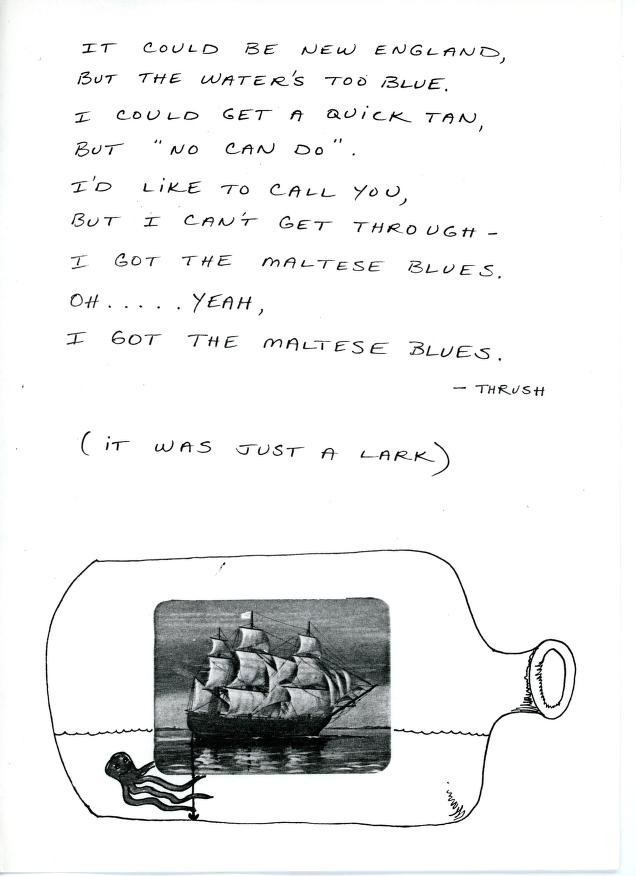 IT COULD BE NEW ENGLAND,
BUT THE WATER'S TOO BLUE.
I COULD GET A QUICK TAN,
BUT "NO CAN DO".
I'D LIKE TO CALL YOU,
BUT I CAN'T GET THROUGH -
I GOT THE MALTESE BLUES.
OH.....YEAH,
I GOT THE MALTESE BLUES.
- THRUSH
(IT WAS JUST A LARK)